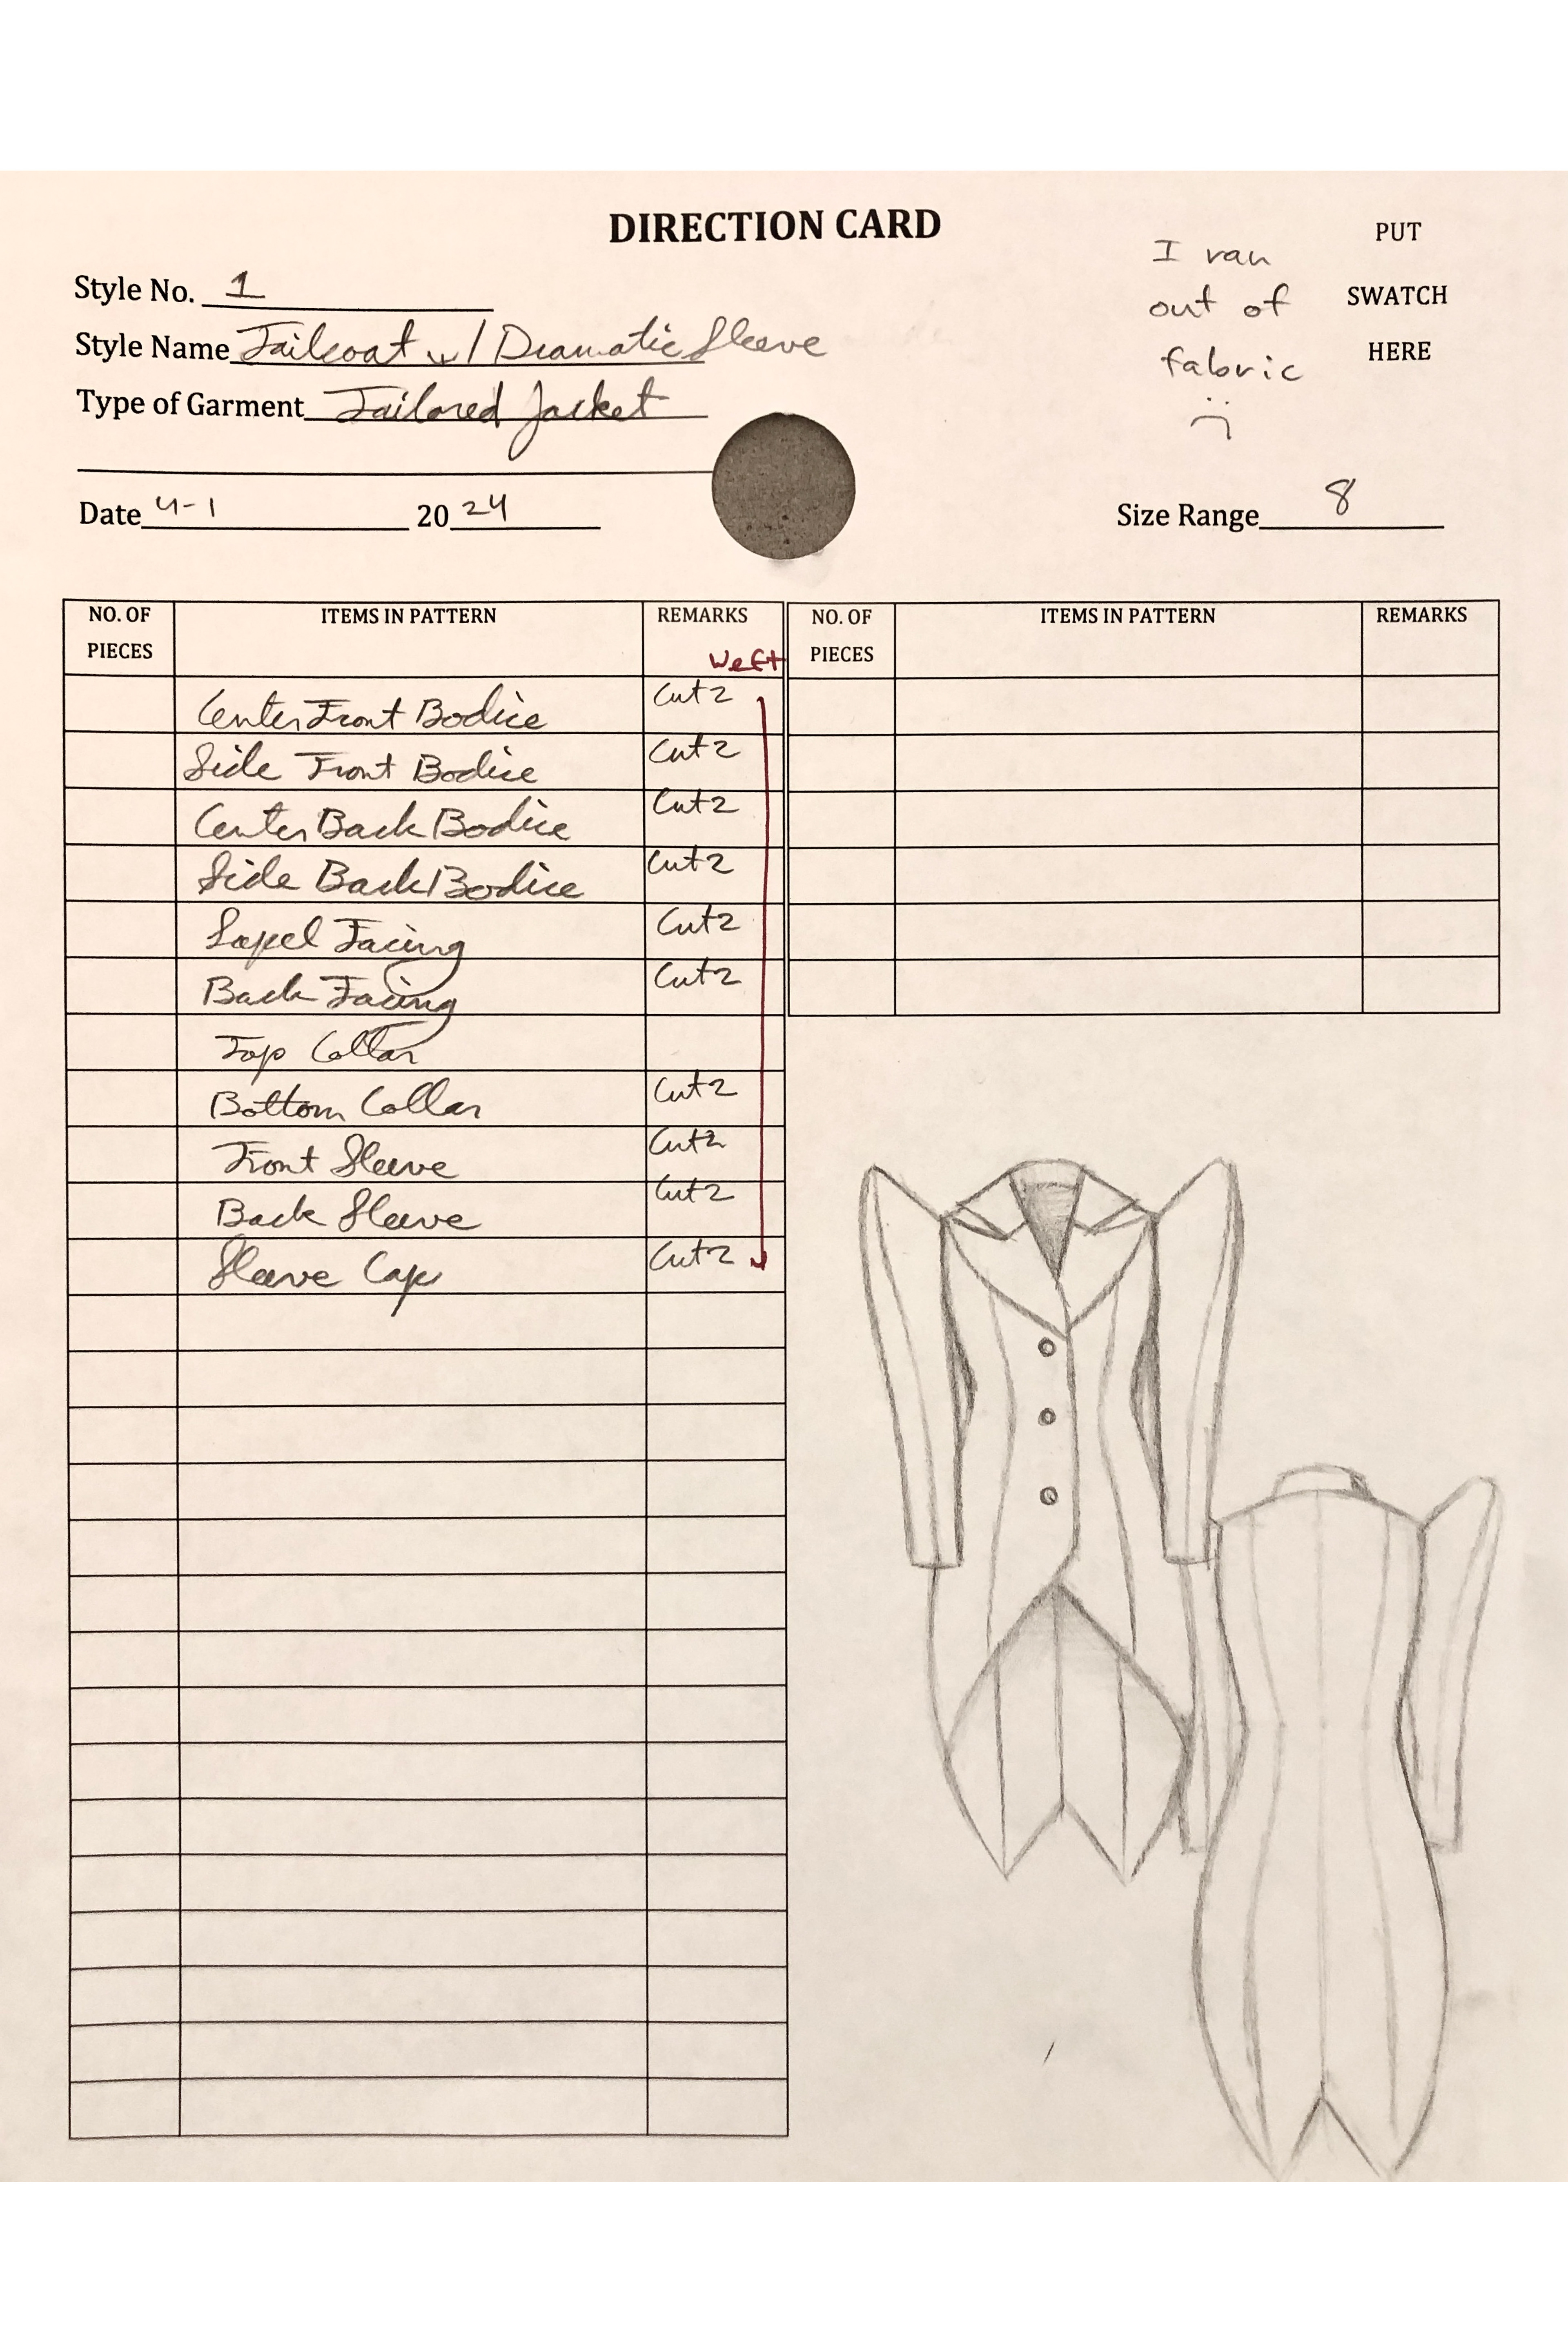 DIRECTION CARD
I ran
out of
fabric
:(
PUT
SWATCH
HERE
Style No. 1
Style Name Tailcoat w/ Dramatic Sleeve
Type of Garment Tailored Jacket
Date 4-1 2024
Size Range 8
NO. OF PIECES ITEMS IN PATTERN REMARKS Weft
Center Front Bodice Cut 2
Side Front Bodice Cut 2
Center Back Bodice Cut 2
Side Back Bodice Cut 2
Lapel Facing Cut 2
Back Facing Cut 2
Top Collar
Bottom Collar Cut 2
Front Sleeve Cut 2
Back Sleeve Cut 2
Sleeve Cap Cut 2
NO. OF PIECES ITEMS IN PATTERN REMARKS